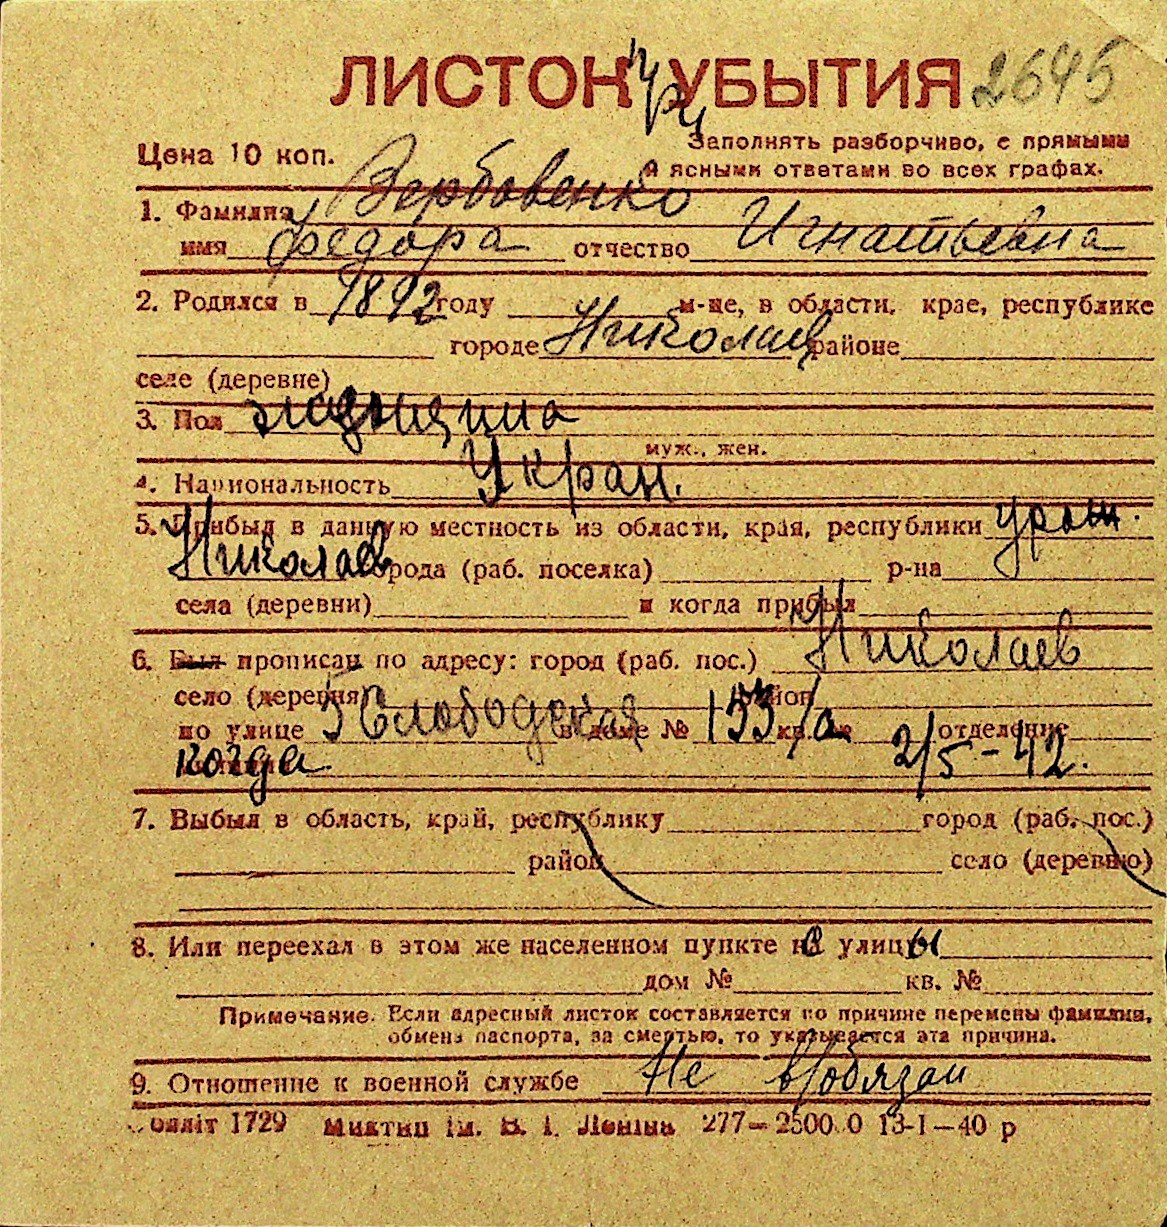 ЛИСТОК УБЫТИЯ 2645
При
Цена 10 коп. Заполнять разборчиво, с прямыми
и ясными ответами во всех графах.
1. Фамилия Вербовенко
имя Федора отчество Игнатьевна
2. Родился в 1892 году м-це, в области, крае, республике
городе Николаев районе
селе (деревне)
3. Пол женщина
муж., жен.
4. Национальность Украин.
5. Прибыл в данную местность из области, края, республики урож.
Николаев города (раб. поселка) р-на
села (деревни) и когда прибыл
6. Был прописан по адресу: город (раб. пос.) Николаев
село (деревня) район
по улице 5 Слободская в доме № 133/а кв. № отделение
когда 2/5-42.
7. Выбыл в область, край, республику город (раб. пос.)
район село (деревню)
8. Или переехал в этом же населенном пункте с улицы
дом № кв. №
Примечание. Если адресный листок составляется по причине перемены фамилии,
обмена паспорта, за смертью, то указывается эта причина.
9. Отношение к военной службе Не в/обязан
1729 ім. В. І. Леніна 277—2500 0 13-I—40 р